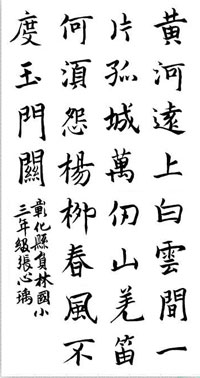 黃河遠上白雲間一
片孤城萬仞山羌笛
何須怨楊柳春風不
度玉門關
彰化縣員林國小
三年級張心瑀